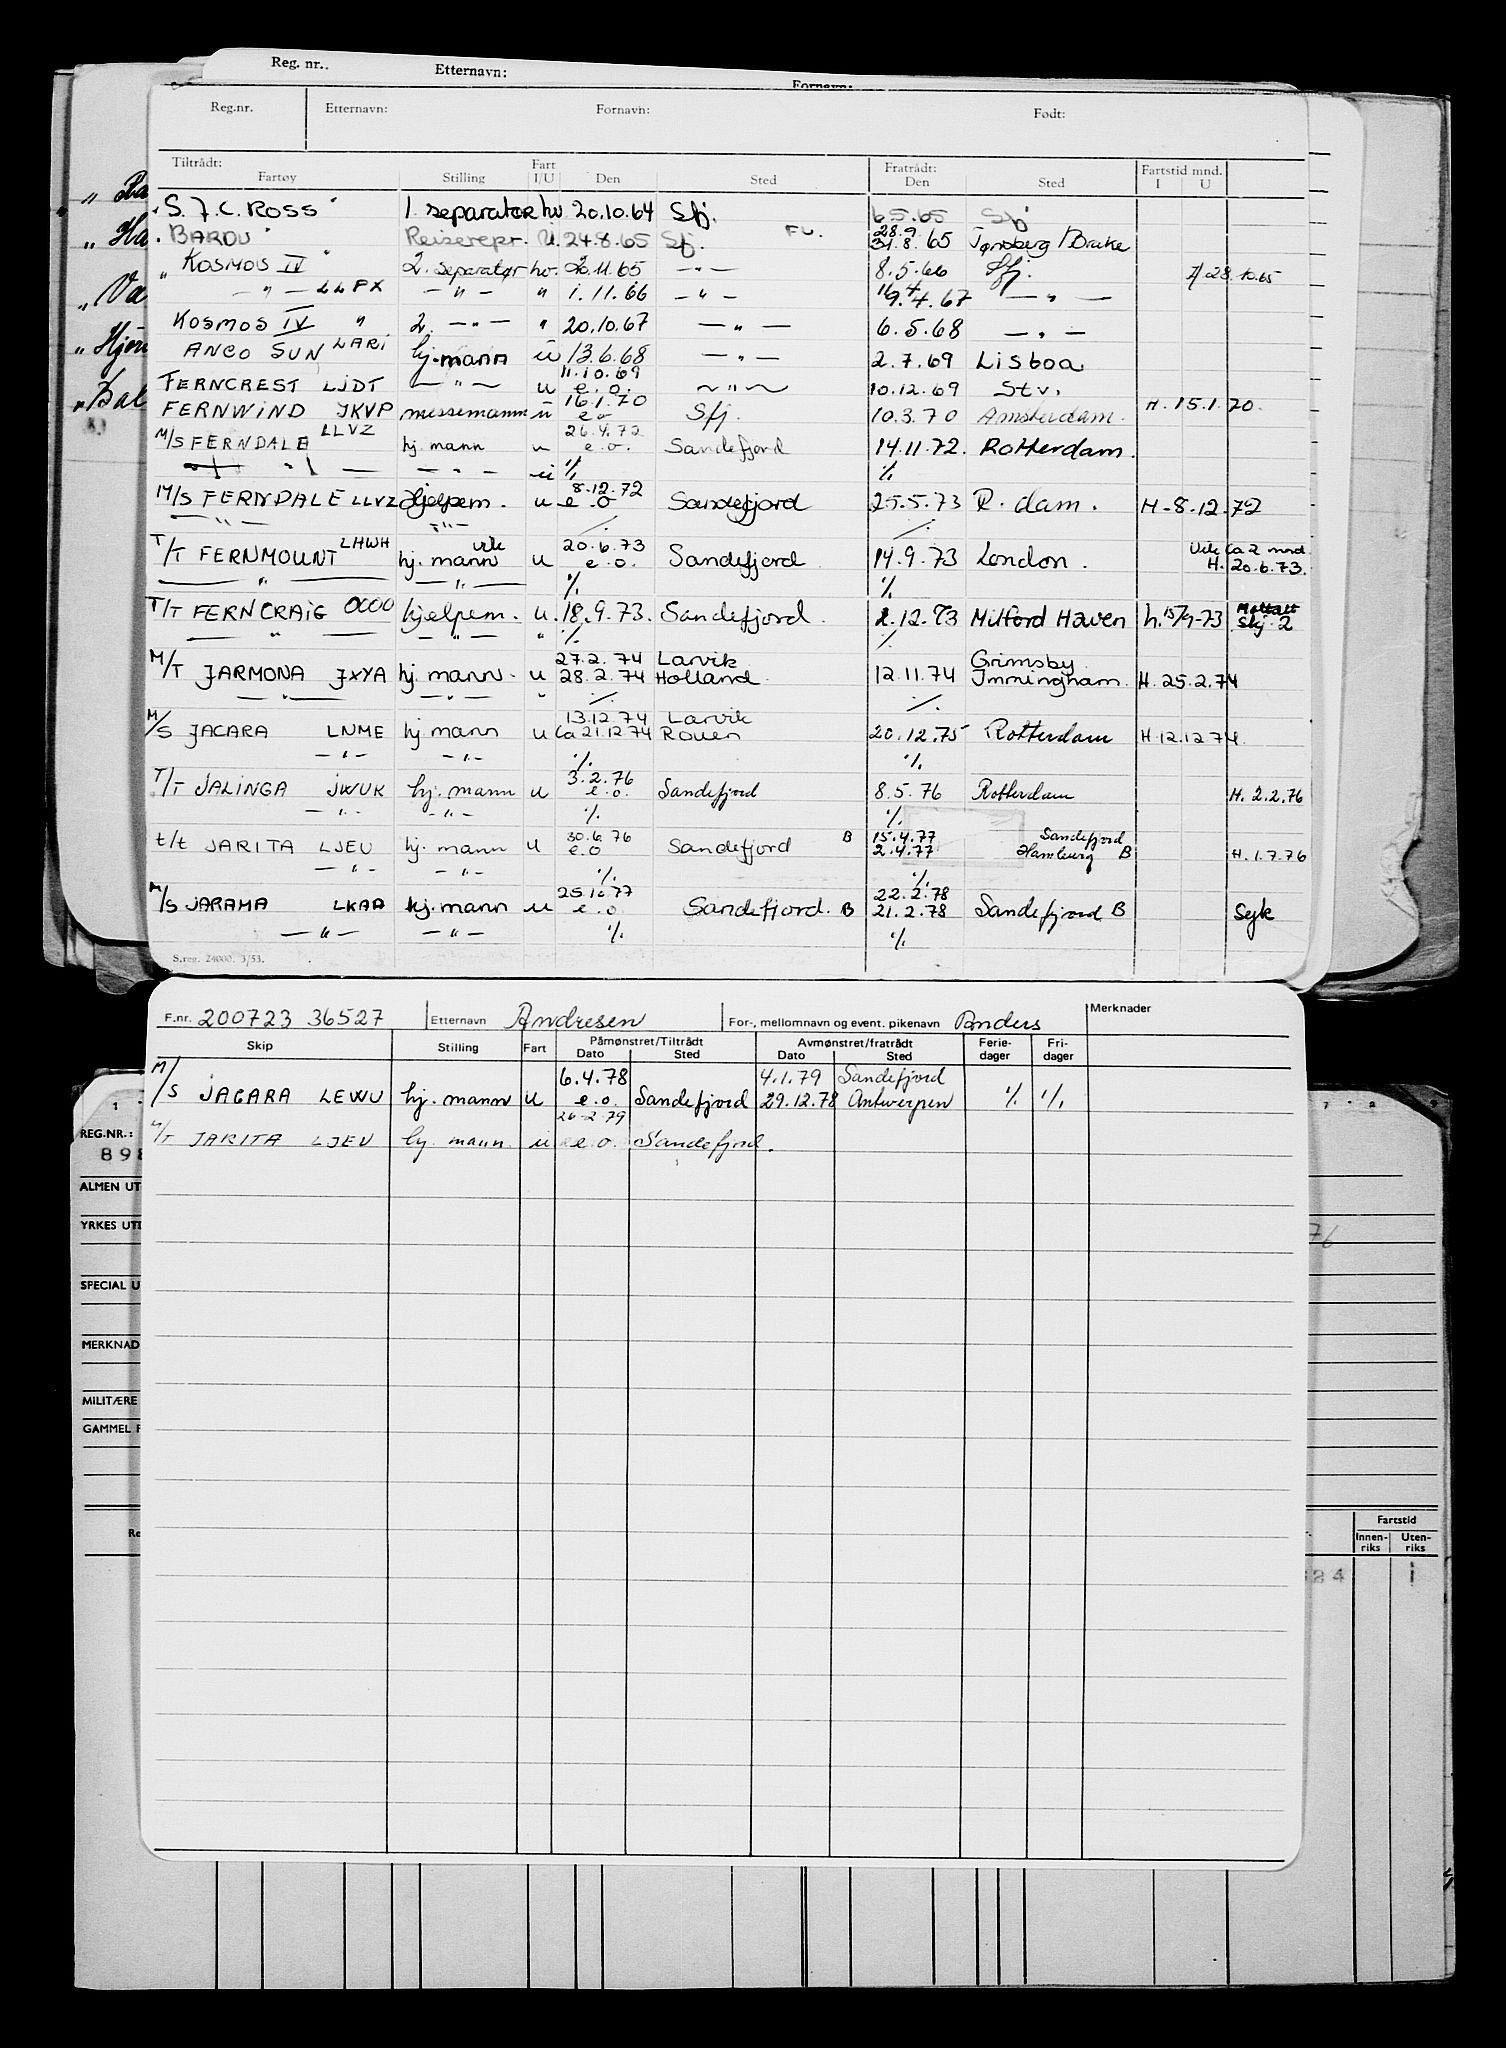 Reg. nr. Etternavn: Fornavn:
Reg.nr. Etternavn: Fornavn: Født:
Tiltrådt: Fart Fratrådt: Fartstid mnd.
Fartøy Stilling I/U Den Sted Den Sted I U
S. J. C. ROSS " 1. separatør hv 20.10.64 Sfj. 6.5.65 Sfj
BARDU " Reiserepr. U. 24.8.65 Sfj. FU. 28.9. 31.8.65 Tønsberg / Brake
" KOSMOS IV " 2. separatør hv. 20.11.65 — " — 8.5.66 Sfj. 28.10.65
— " — LLPX — " — " 1.11.66 — " — 19.4.67 — " —
KOSMOS IV " 2. — " — " 20.10.67 — " — 6.5.68 — " —
ANCO SUN LARI hj.mann u 13.6.68 — " — 2.7.69 Lisboa
11.10.69
FERNCREST LJDT — " — u e.o. — " — 10.12.69 Stv.
16.1.70
FERNWIND JKVP messemann u e.o Sfj. 10.3.70 Amsterdam. H. 15.1.70.
26.4.72
M/S FERNDALE LLVZ hj. mann u e.o. Sandefjord 14.11.72. Rotterdam.
— " — — " — u % %
8.12.72
M/S FERNDALE LLVZ hjelpem. u e.o Sandefjord 25.5.73 R.dam. H-8.12.72
— " — — " — % %
20.6.73
T/T FERNMOUNT LHWH hj. mann vik u e.o. Sandefjord 14.9.73 London. Vik ca 2 mnd. H. 20.6.73.
— " — — " — % %
T/T FERNCRAIG OOOO hjelpem. u. 18.9.73. Sandefjord. 2.12.73 Milford Haven h. 15/9-73 Skj. 2
— " — — " — " % %
27.2.74 Larvik Grimsby
M/T JARMONA JXYA hj. mann. u 28.2.74 Holland. 12.11.74 Immingham. H. 25.2.74
— " — — " — % %
13.12.74 Larvik
M/S JACARA LNME hj mann u Ca 21.12.74 Rouen 20.12.75 Rotterdam H.12.12.74.
— " — — " — % %
3.2.76
T/T JALINGA JWUK hj. mann u e.o. Sandefjord 8.5.76 Rotterdam H. 2.2.76
— " — — " — % %
30.6.76 B 15.4.77 Sandefjord
t/t JARITA LJEU hj. mann u e.o Sandefjord 2.4.77 Hamburg B H. 1.7.76
— " — — " — % %
25.10.77 22.2.78
M/S JARAMA LKAA hj.mann u e.o Sandefjord. B 21.2.78 Sandefjord B Syk
— " — — " — % %
S.reg. 24000. 3/53.
F.nr. 200723 36527 Etternavn Andresen For-, mellomnavn og event. pikenavn Anders Merknader
Skip Stilling Fart Påmønstret/Tiltrådt Avmønstret/fratrådt Ferie-dager Fri-dager
Dato Sted Dato Sted
6.4.78 4.1.79 Sandefjord
M/S JAGARA LEWU hj. mann u e.o. Sandefjord 29.12.78 Antwerpen % %
26-2.79
T/T JARITA LJEU hj. mann. u e.o. Sandefjord.
REG.NR.:
898
ALMEN UT
YRKES UTI
SPECIAL U
MERKNAD
MILITÆRE
GAMMEL F
76
Fartstid
Innen-riks Uten-riks
24 1